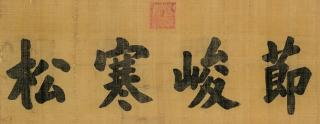 節峻寒松